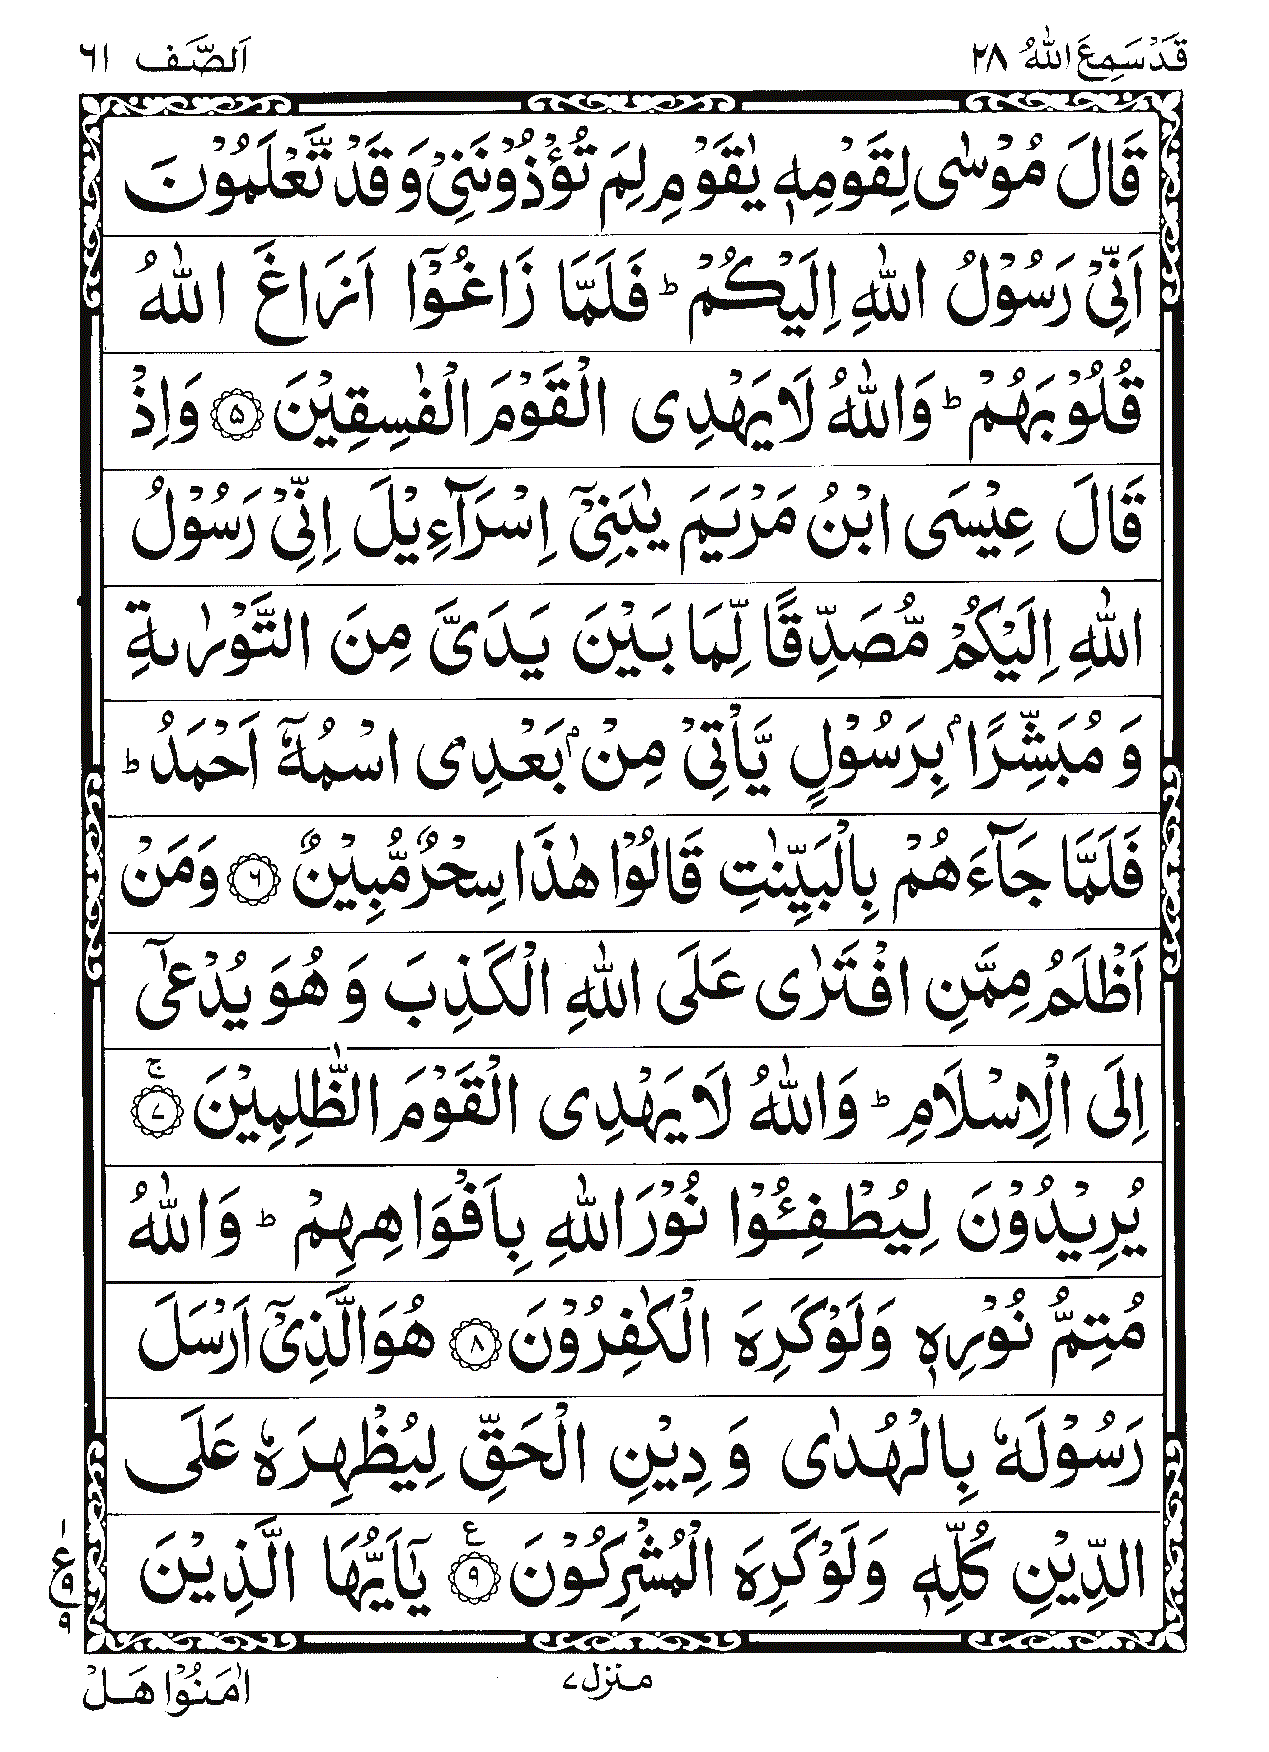 قَدْسَمِعَ اللّٰهُ ٢٨
اَلصَّف ٦١
قَالَ مُوْسٰى لِقَوْمِهٖ يٰقَوْمِ لِمَ تُؤْذُوْنَنِىْ وَقَدْ تَّعْلَمُوْنَ
اَنِّىْ رَسُوْلُ اللّٰهِ اِلَيْكُمْ ؕ فَلَمَّا زَاغُوْۤا اَزَاغَ اللّٰهُ
قُلُوْبَهُمْ ؕ وَاللّٰهُ لَا يَهْدِى الْقَوْمَ الْفٰسِقِيْنَ ۝٥ وَاِذْ
قَالَ عِيْسَى ابْنُ مَرْيَمَ يٰبَنِىْۤ اِسْرَآءِيْلَ اِنِّىْ رَسُوْلُ
اللّٰهِ اِلَيْكُمْ مُّصَدِّقًا لِّمَا بَيْنَ يَدَىَّ مِنَ التَّوْرٰىةِ
وَ مُبَشِّرًاۢ بِرَسُوْلٍ يَّاْتِىْ مِنْۢ بَعْدِى اسْمُهٗۤ اَحْمَدُ ؕ
فَلَمَّا جَآءَهُمْ بِالْبَيِّنٰتِ قَالُوْا هٰذَا سِحْرٌ مُّبِيْنٌ ۝٦ وَمَنْ
اَظْلَمُ مِمَّنِ افْتَرٰى عَلَى اللّٰهِ الْكَذِبَ وَ هُوَ يُدْعٰٓى
اِلَى الْاِسْلَامِ ؕ وَاللّٰهُ لَا يَهْدِى الْقَوْمَ الظّٰلِمِيْنَ ۝٧ ۚ
يُرِيْدُوْنَ لِيُطْفِـُٔوْا نُوْرَ اللّٰهِ بِاَفْوَاهِهِمْ ؕ وَاللّٰهُ
مُتِمُّ نُوْرِهٖ وَلَوْ كَرِهَ الْكٰفِرُوْنَ ۝٨ هُوَ الَّذِىْۤ اَرْسَلَ
رَسُوْلَهٗ بِالْهُدٰى وَ دِيْنِ الْحَقِّ لِيُظْهِرَهٗ عَلَى
الدِّيْنِ كُلِّهٖ وَلَوْ كَرِهَ الْمُشْرِكُوْنَ ۝٩ ع يٰۤاَيُّهَا الَّذِيْنَ
١
ع ٩
٩
منزل ٧
اٰمَنُوْا هَلْ